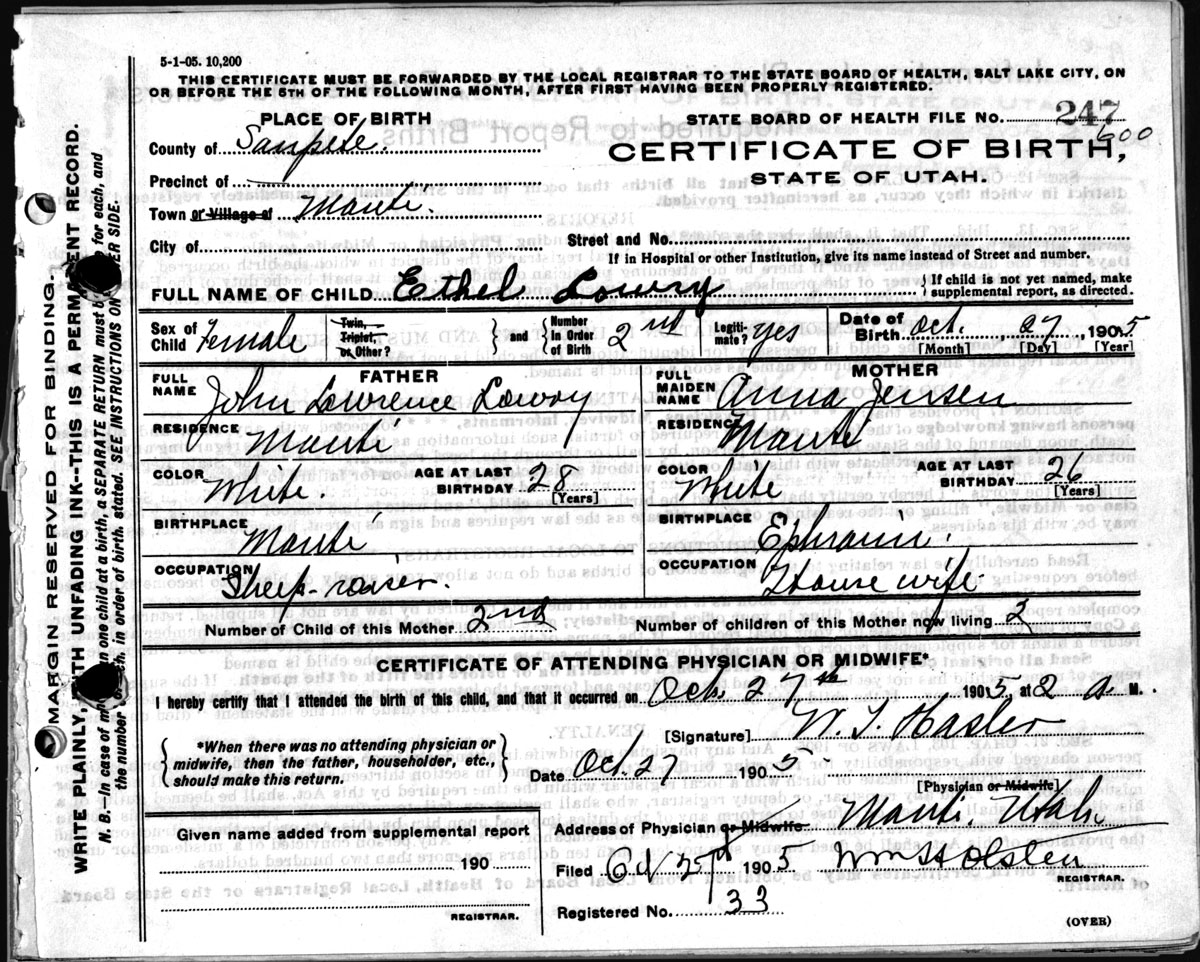 5-1-05. 10,200
THIS CERTIFICATE MUST BE FORWARDED BY THE LOCAL REGISTRAR TO THE STATE BOARD OF HEALTH, SALT LAKE CITY, ON
OR BEFORE THE 5TH OF THE FOLLOWING MONTH, AFTER FIRST HAVING BEEN PROPERLY REGISTERED.
PLACE OF BIRTH
STATE BOARD OF HEALTH FILE NO. 247
600
County of Sanpete.
CERTIFICATE OF BIRTH,
STATE OF UTAH.
Precinct of
Town or Village of Manti.
City of
Street and No.
If in Hospital or other Institution, give its name instead of Street and number.
FULL NAME OF CHILD Ethel Lowry { If child is not yet named, make supplemental report, as directed.
Sex of Child Female Twin, Triplet, or Other? } and { Number in Order of Birth 2nd Legiti-mate? yes Date of Birth Oct. 27, 1905
[Month] [Day] [Year]
FATHER
MOTHER
FULL NAME John Lawrence Lowry
FULL MAIDEN NAME Anna Jensen
RESIDENCE Manti
RESIDENCE Manti
COLOR White. AGE AT LAST BIRTHDAY 28 [Years]
COLOR White AGE AT LAST BIRTHDAY 26 [Years]
BIRTHPLACE Manti
BIRTHPLACE Ephraim.
OCCUPATION Sheep-raiser.
OCCUPATION House wife.
Number of Child of this Mother 2nd
Number of children of this Mother now living 2
CERTIFICATE OF ATTENDING PHYSICIAN OR MIDWIFE*
I hereby certify that I attended the birth of this child, and that it occurred on Oct. 27th, 1905, at 2 a M.
{ *When there was no attending physician or midwife, then the father, householder, etc., should make this return. }
[Signature] W. T. Hasler
Date Oct. 27 1905
[Physician or Midwife]
Given name added from supplemental report
190
REGISTRAR.
Address of Physician or Midwife Manti, Utah
Filed 1905 Wm H Olsten
REGISTRAR.
Registered No. 33
(OVER)
MARGIN RESERVED FOR BINDING.
WRITE PLAINLY, WITH UNFADING INK--THIS IS A PERMANENT RECORD.
N. B.--In case of more than one child at a birth, a SEPARATE RETURN must be for each, and
the number of each, in order of birth, stated. SEE INSTRUCTIONS ON OTHER SIDE.